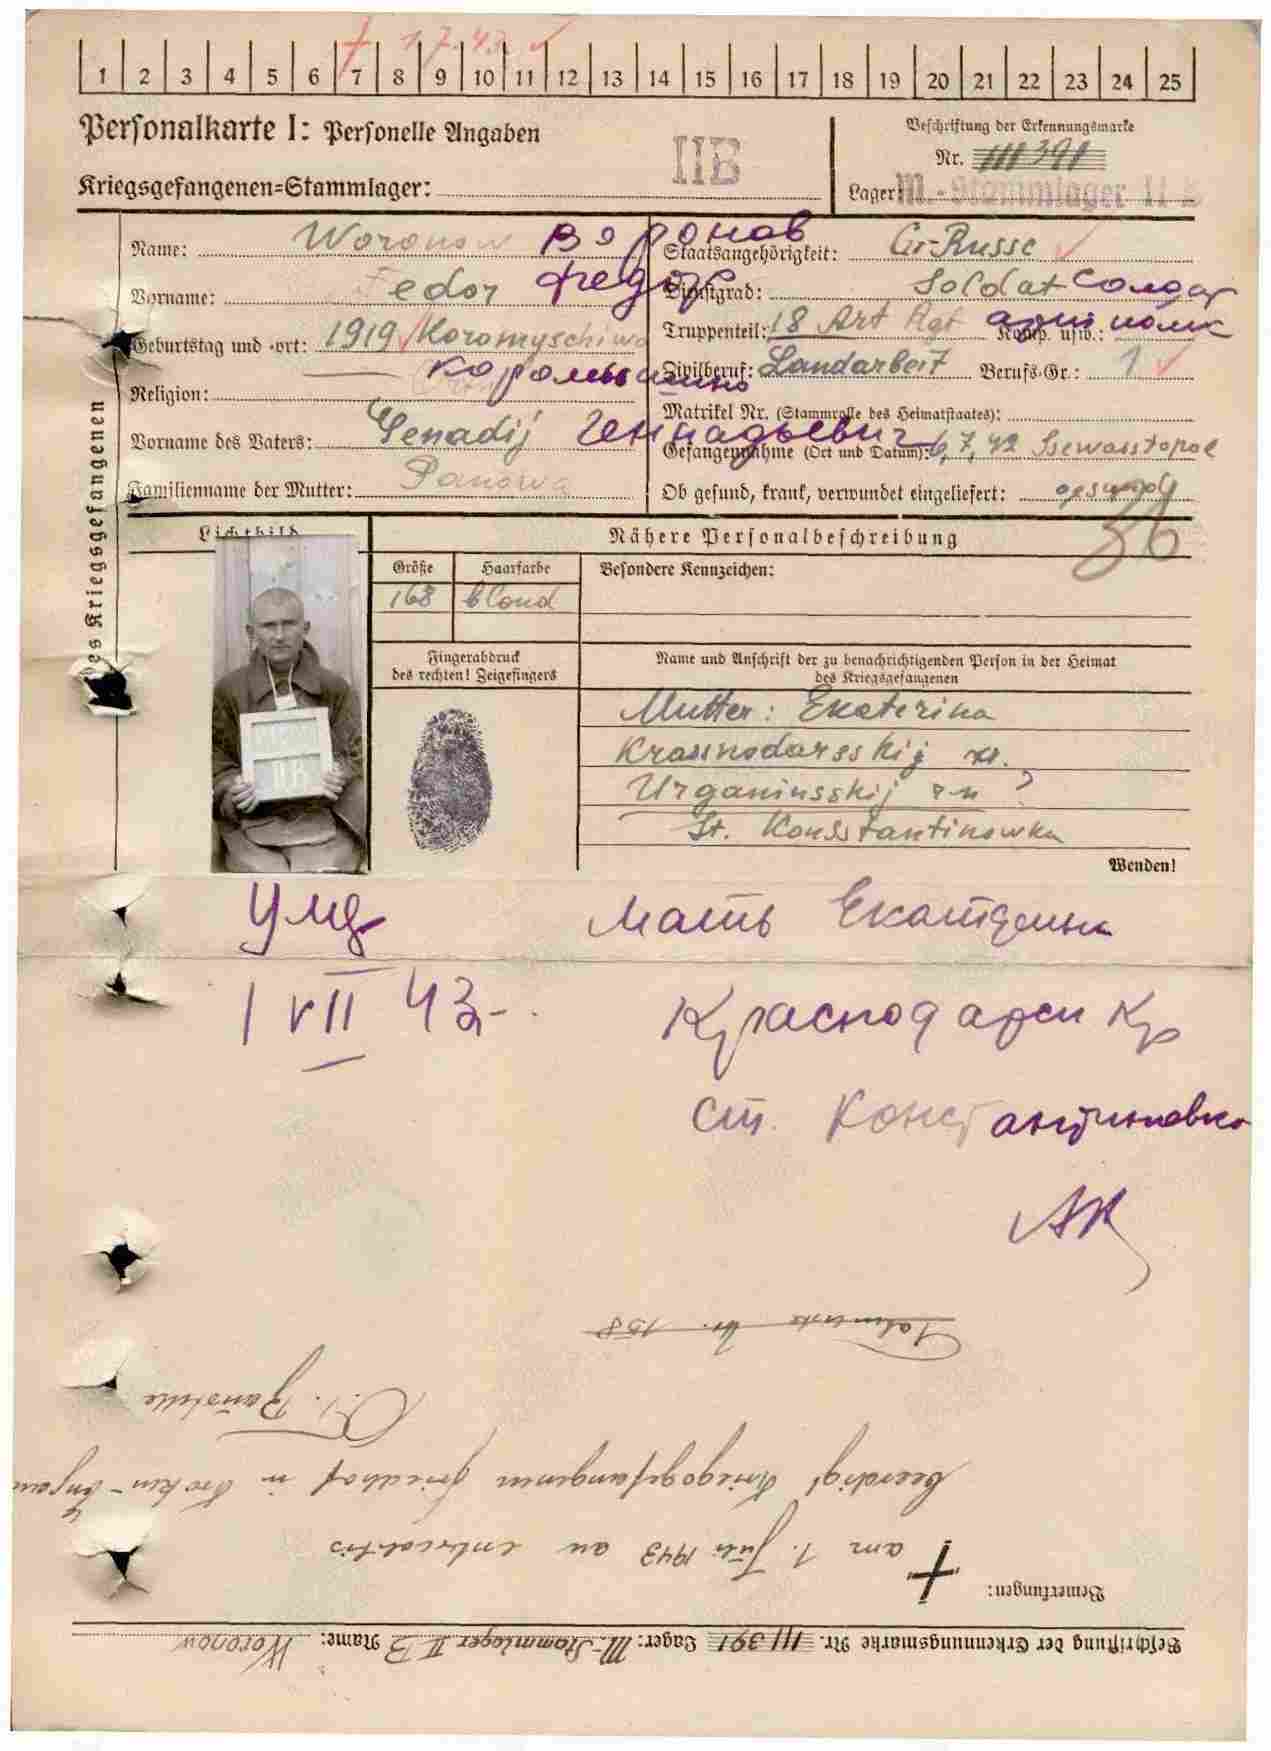 † 1.7.43. ✓
1 2 3 4 5 6 7 8 9 10 11 12 13 14 15 16 17 18 19 20 21 22 23 24 25
Personalkarte I: Personelle Angaben
Kriegsgefangenen=Stammlager: IIB
Beschriftung der Erkennungsmarke
Nr. 111391
Lager: M.-Stammlager II B
des Kriegsgefangenen
Name: Woronow Воронов
Vorname: Fedor Федор
Geburtstag und -ort: 1919 Koromyschiwo
Коромышино
Religion:
Vorname des Vaters: Genadij Геннадьевич
Familienname der Mutter: Panowa
Staatsangehörigkeit: Gr-Russe
Dienstgrad: Soldat Солдат
Truppenteil: 18 Art Rgt арт полк Komp. usw.:
Zivilberuf: Landarbeit Berufs-Gr.: 1
Matrikel Nr. (Stammrolle des Heimatstaates):
Gefangennahme (Ort und Datum): 6,7,42 Ssewasstopol
Ob gesund, krank, verwundet eingeliefert: gesund
36
Lichtbild
Nähere Personalbeschreibung
Größe Haarfarbe Besondere Kennzeichen:
168 blond
Fingerabdruck
des rechten! Zeigefingers
Name und Anschrift der zu benachrichtigenden Person in der Heimat
des Kriegsgefangenen
Mutter: Ekaterina
Krassnodarsskij kr.
Urganinsskij r-n ?
St. Konsstantinowka
Wenden!
Умер Мать Екатерина
1 VII 43 Краснодарск Кр
ст. Константиновка
АК
Nr. 158
beerdigt Kriegsgefangenen friedhof in
am 1. Juli 1943 an
Bemerkungen:
Beschriftung der Erkennungsmarke Nr. 111391 Lager: M-Stammlager II B Name: Woronow